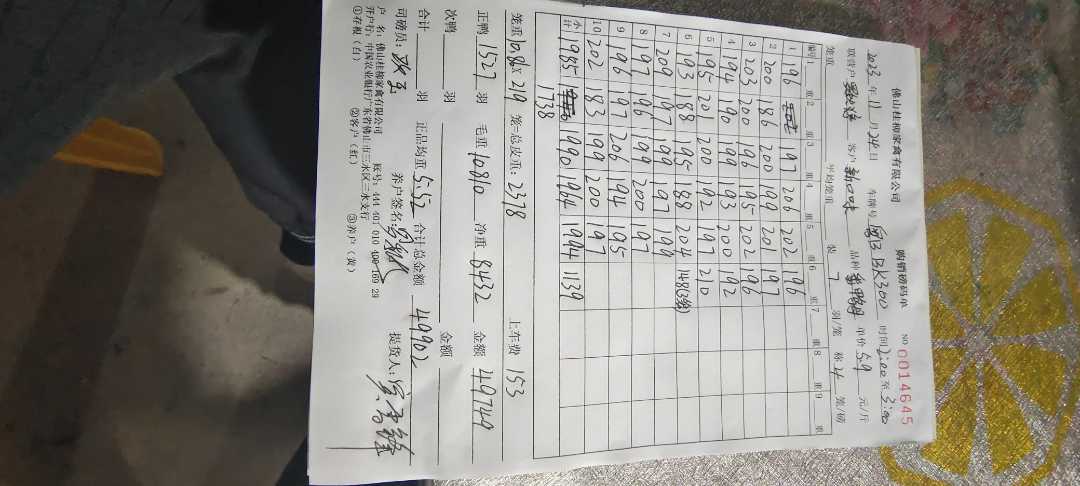 佛山桂柳家禽有限公司 购销磅码单 NO 0014645
2023年11月24日 车牌号 粤B BK300 时间 2:00 至 3:00
联营户 客户 新口味 品种 单价 5.9 元/斤
笼重 平均笼重 装 7 羽/笼 称 4 笼/磅
编号 1 重 2 重 3 重 4 重 5 重 6 重 7 重 8 重 9 重
1 196 197 206 202 196
2 200 186 200 199 201 197
3 203 200 196 195 202 196
4 194 190 199 193 200 192
5 195 201 200 192 197 210
6 193 188 195 188 204 148(3笼)
7 209 197 199 197 199
8 197 196 199 200 197
9 196 197 206 194 195
10 202 183 199 200 197
小计 1985 1738 1990 1964 1994 1139
笼重 10.86 X 219 笼=总皮重: 2378 上车费 153
正鸭 1527 羽 毛重 10810 净重 8432 金额 49749
次鸭 羽 金额
合计 羽 正品均重 5.52 合计总金额 49902
司磅员: 养户签名 提货人:
户 名: 佛山桂柳家禽有限公司 账号: 444 401 010 400 169 29
开户行: 中国农业银行广东省佛山市三水区三水支行
①存根(白) ②客户(红) ③养户(黄)